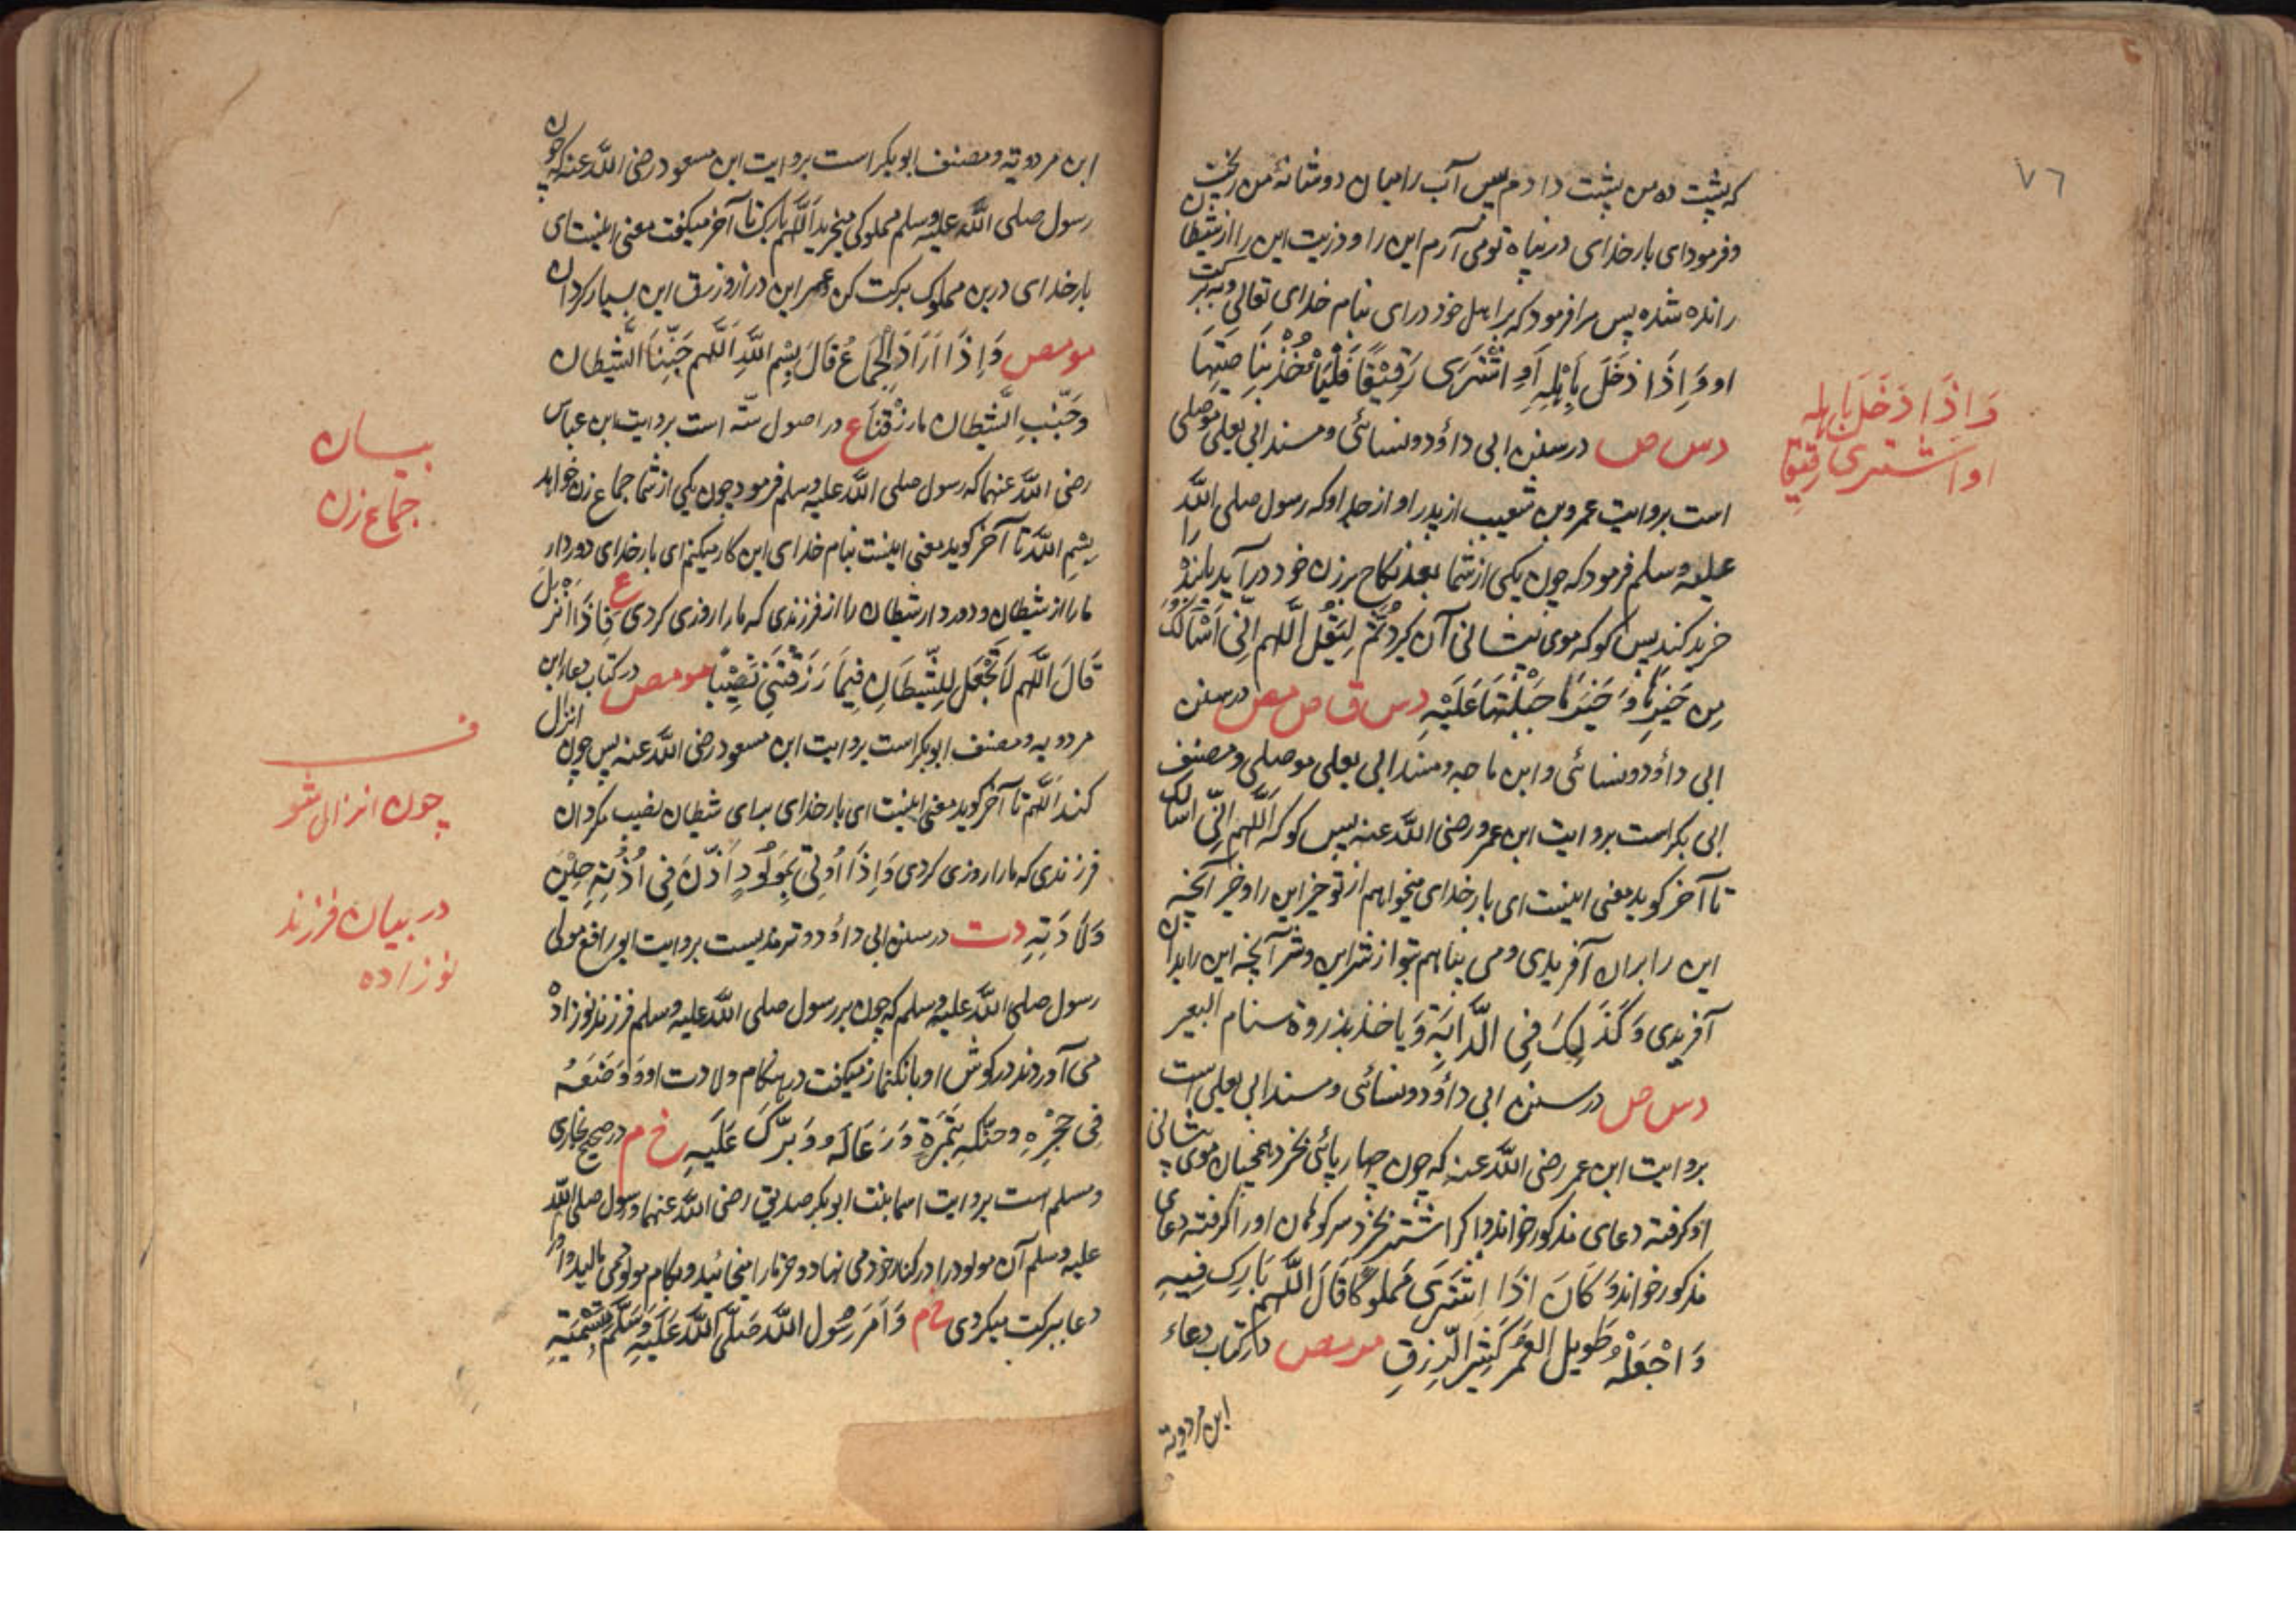 ٧٦
که پشت ده من پشت دادم پس آب را میان دو شانهٔ من ریخت
و فرمود ای بار خدای در پناه تو می آرم این را و ذریت این را از شیطان
رانده شده پس مرا فرمود که بر اهل خود درای بنام خدای تعالی و به برکت
او وَاِذَا دَخَلَ بِاَهْلِهِ اَوِ اشْتَرَی رَقِیْقًا فَلْیَاْخُذْ بِنَاصِیَتِهَا
دس ص در سنن ابی داؤد و نسائی و مسند ابی یعلی موصلی
است بروایت عمرو بن شعیب از پدر او از جد او که رسول صلی اللّه
علیه و سلم فرمود که چون یکی از شما بعد نکاح بر زن خود در آید یا بنده را
خرید کند پس کو که موی پیشانی آن کیرد ثُمَّ لِیَقُلْ اَللّهم اِنِّی اَسْاَلُکَ
مِن خَیْرِهَا وَ خَیْرِ مَا جَبَلْتَهَا عَلَیْهِ دس ق ص مص در سنن
ابی داؤد و نسائی و ابن ماجه و مسند ابی یعلی موصلی و مصنف
ابی بکر است بروایت ابن عمرو رضی اللّه عنه پس کو که اَللّهم اِنِّی اسالک
تا آخر کوید معنی اینست ای بار خدای میخواهم از تو خیر این را و خیر آنچه
این را بران آفریدی و می پناهم بتو از شر این و شر آنچه این را بدان
آفریدی وَکَذَلِکَ فِی الدَّابَةِ وَ یاخذ بذروة سنام البعیر
دس ص در سنن ابی داؤد و نسائی و مسند ابی یعلی است
بروایت ابن عمر رضی اللّه عنه که چون چهار پائی بخرد همچنان موی پیشانی
او کرفته دعای مذکور خواند و اکر اشتر بخرد سر کوهان او را کرفته دعای
مذکور خواند وَ کَانَ اِذَا اِشْتَرَی مَملوکًا قَالَ اَللّهم بَارِک فِیهِ
وَ اجْعَلْهُ طَوِیل العُمُرِ کَثِیرَ الرِّزقِ مو مص در کتاب دعاء
ابن مردویه
وَاِذَا دَخَلَ بِاهله
او اشتری رقیقا
ابن مردویه و مصنف ابو بکر است بروایت ابن مسعود رضی اللّه عنه که چون
رسول صلی اللّه علیه و سلم مملوکی میخرید اَللّهم بارک تا آخر میکفت معنی اینست ای
بار خدای درین مملوک برکت کن و عمر این دراز و رزق این بسیار کردان
مو مص وَاِذَا اَرَادَ الجِمَاعَ قَالَ بِسْمِ اللّهِ اَللّهم جَنِّبْنَا الشَّیطان
وَجَنِّبِ الشَّیطان مَا رَزَقْتَنَا ع در اصول سته است بروایت ابن عباس
رضی اللّه عنهما که رسول صلی اللّه علیه و سلم فرمود چون یکی از شما جماع زن خواهد
بِسْمِ اللّه تا آخر کوید معنی اینست بنام خدای این کار میکنم ای بار خدای دور دار
ما را از شیطان و دور دار شیطان را از فرزندی که ما را روزی کردی ع فَاِذَا اَنْزَلَ
قَالَ اَللّهم لَا تَجْعَل لِلشَّیطَانِ فِیمَا رَزَقْتَنِی نَصِیْبًا مو مص در کتاب دعاء ابن
مردویه و مصنف ابو بکر است بروایت ابن مسعود رضی اللّه عنه پس چون انزال
کند اَللّهم تا آخر کوید معنی اینست ای بار خدای برای شیطان نصیب مکردان
فرزندی که ما را روزی کردی وَاِذَا اُوتِیَ بِمَولُودٍ اَذَّنَ فِی اُذُنِهِ حِیْنَ
وَلَادَتِهِ دت در سنن ابی داؤد و ترمذیست بروایت ابو رافع مولی
رسول صلی اللّه علیه و سلم که چون بر رسول صلی اللّه علیه و سلم فرزند نو زاده
می آوردند در کوش او بانک نماز میکفت در هنکام ولادت او وَ وَضَعَهُ
فِی حَجْرِهِ وَحَنَّکَهِ بِتَمْرَةٍ وَ دَعَا لَه وَ بَرَّکَ عَلَیهِ خ م در صحیح بخاری
و مسلم است بروایت اسما بنت ابو بکر صدیق رضی اللّه عنهما و رسول صلی اللّه
علیه و سلم آن مولود را در کنار خود می نهاد و خرما را میخائید و بکام مولود می مالید و او را
دعا ببرکت میکردی خ م وَ اَمَرَ رَسُول اللّه صَلَّی اللّهُ عَلَیهِ وَسَلَّمَ بِتَسْمِیَتِهِ
بیان
جماع زن
ف
چون انزال شو
در بیان فرزند
نوزاده